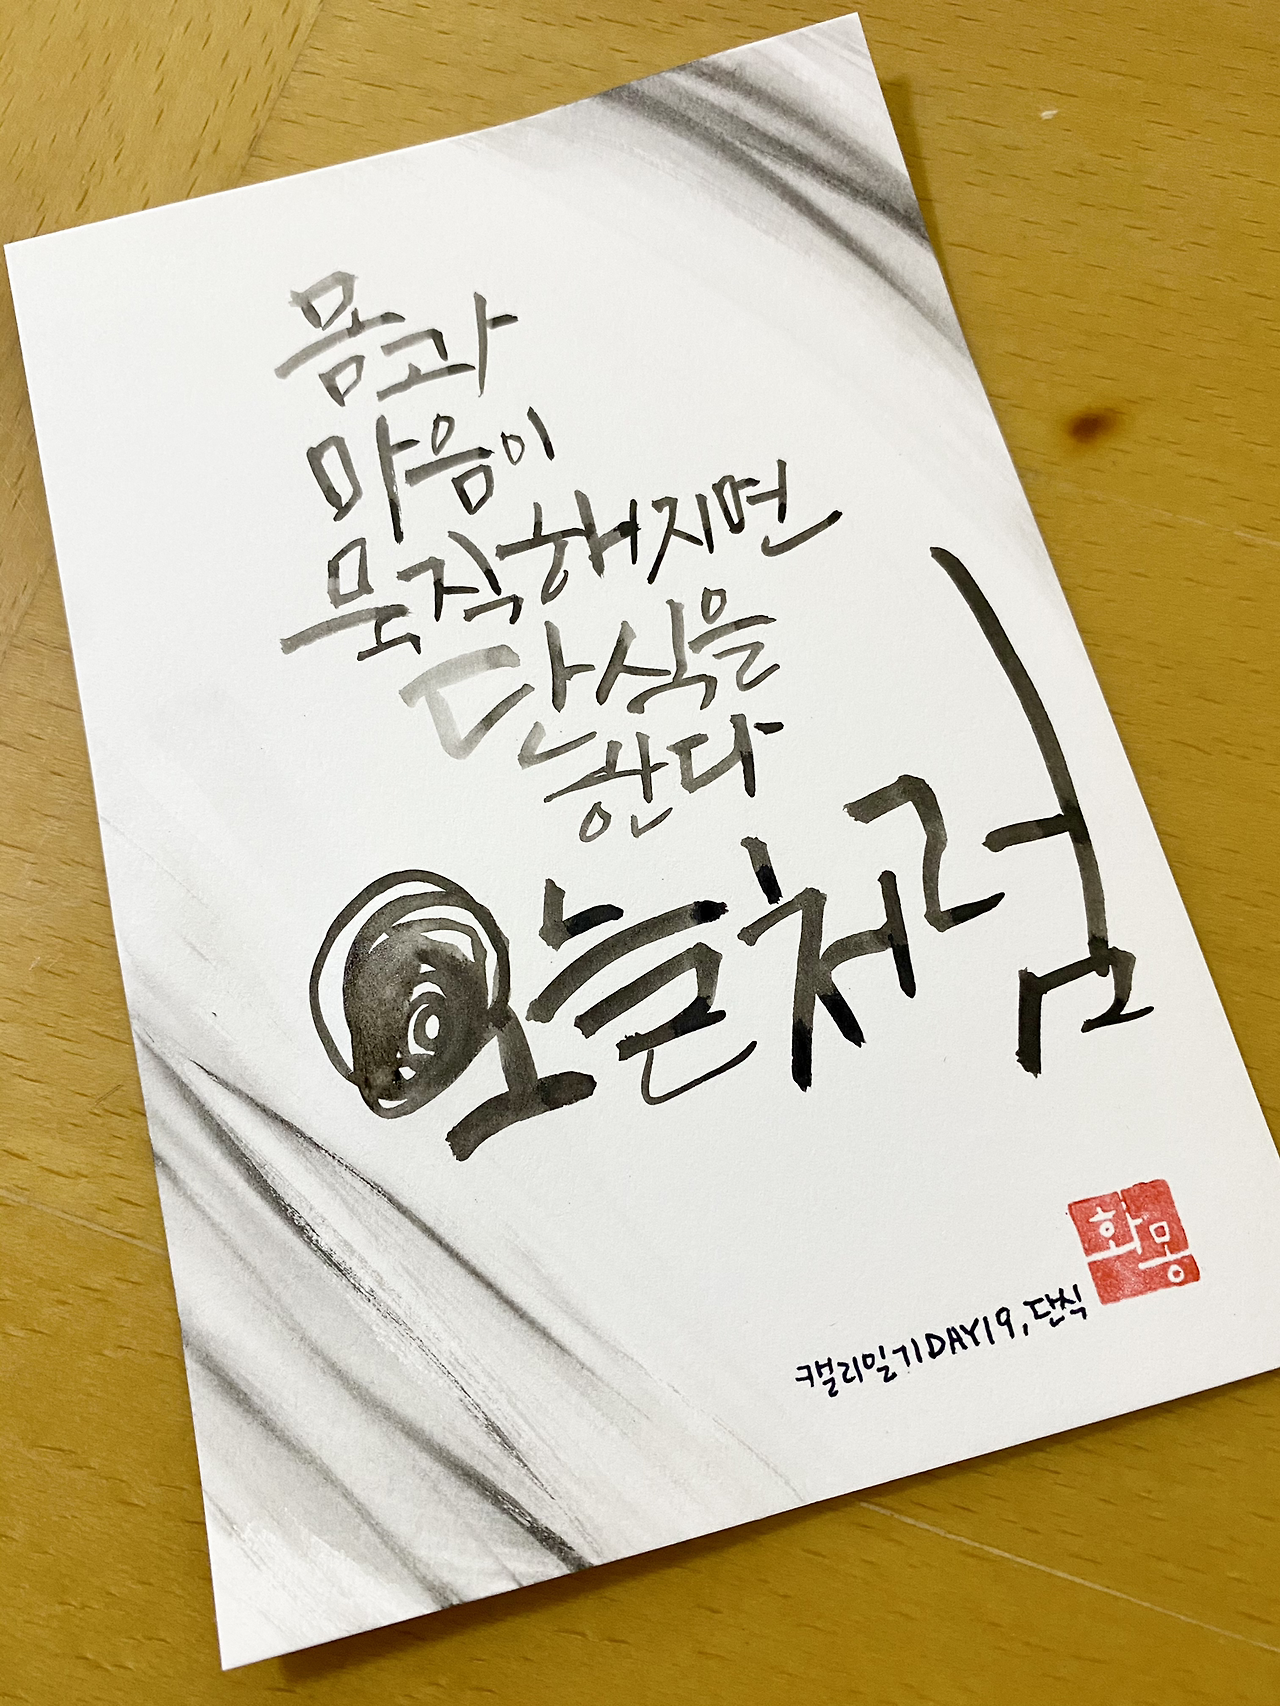 몸과
마음이
묵직해지면
단식을
한다
오늘처럼
화몽
캘리일기DAY19, 단식